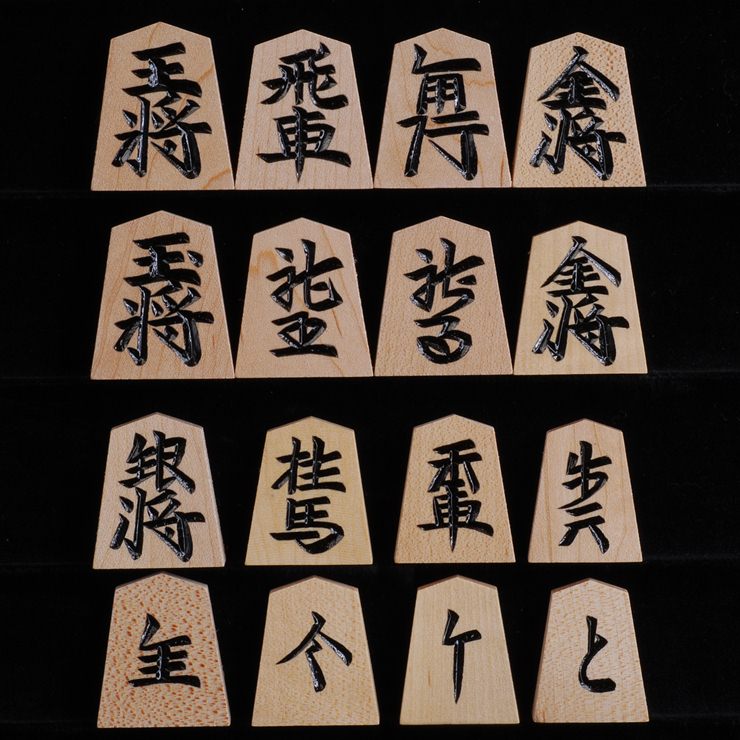 王将 飛車 角行 金将
玉将 龍王 龍馬 金将
銀将 桂馬 香車 歩兵
全 今 ケ と